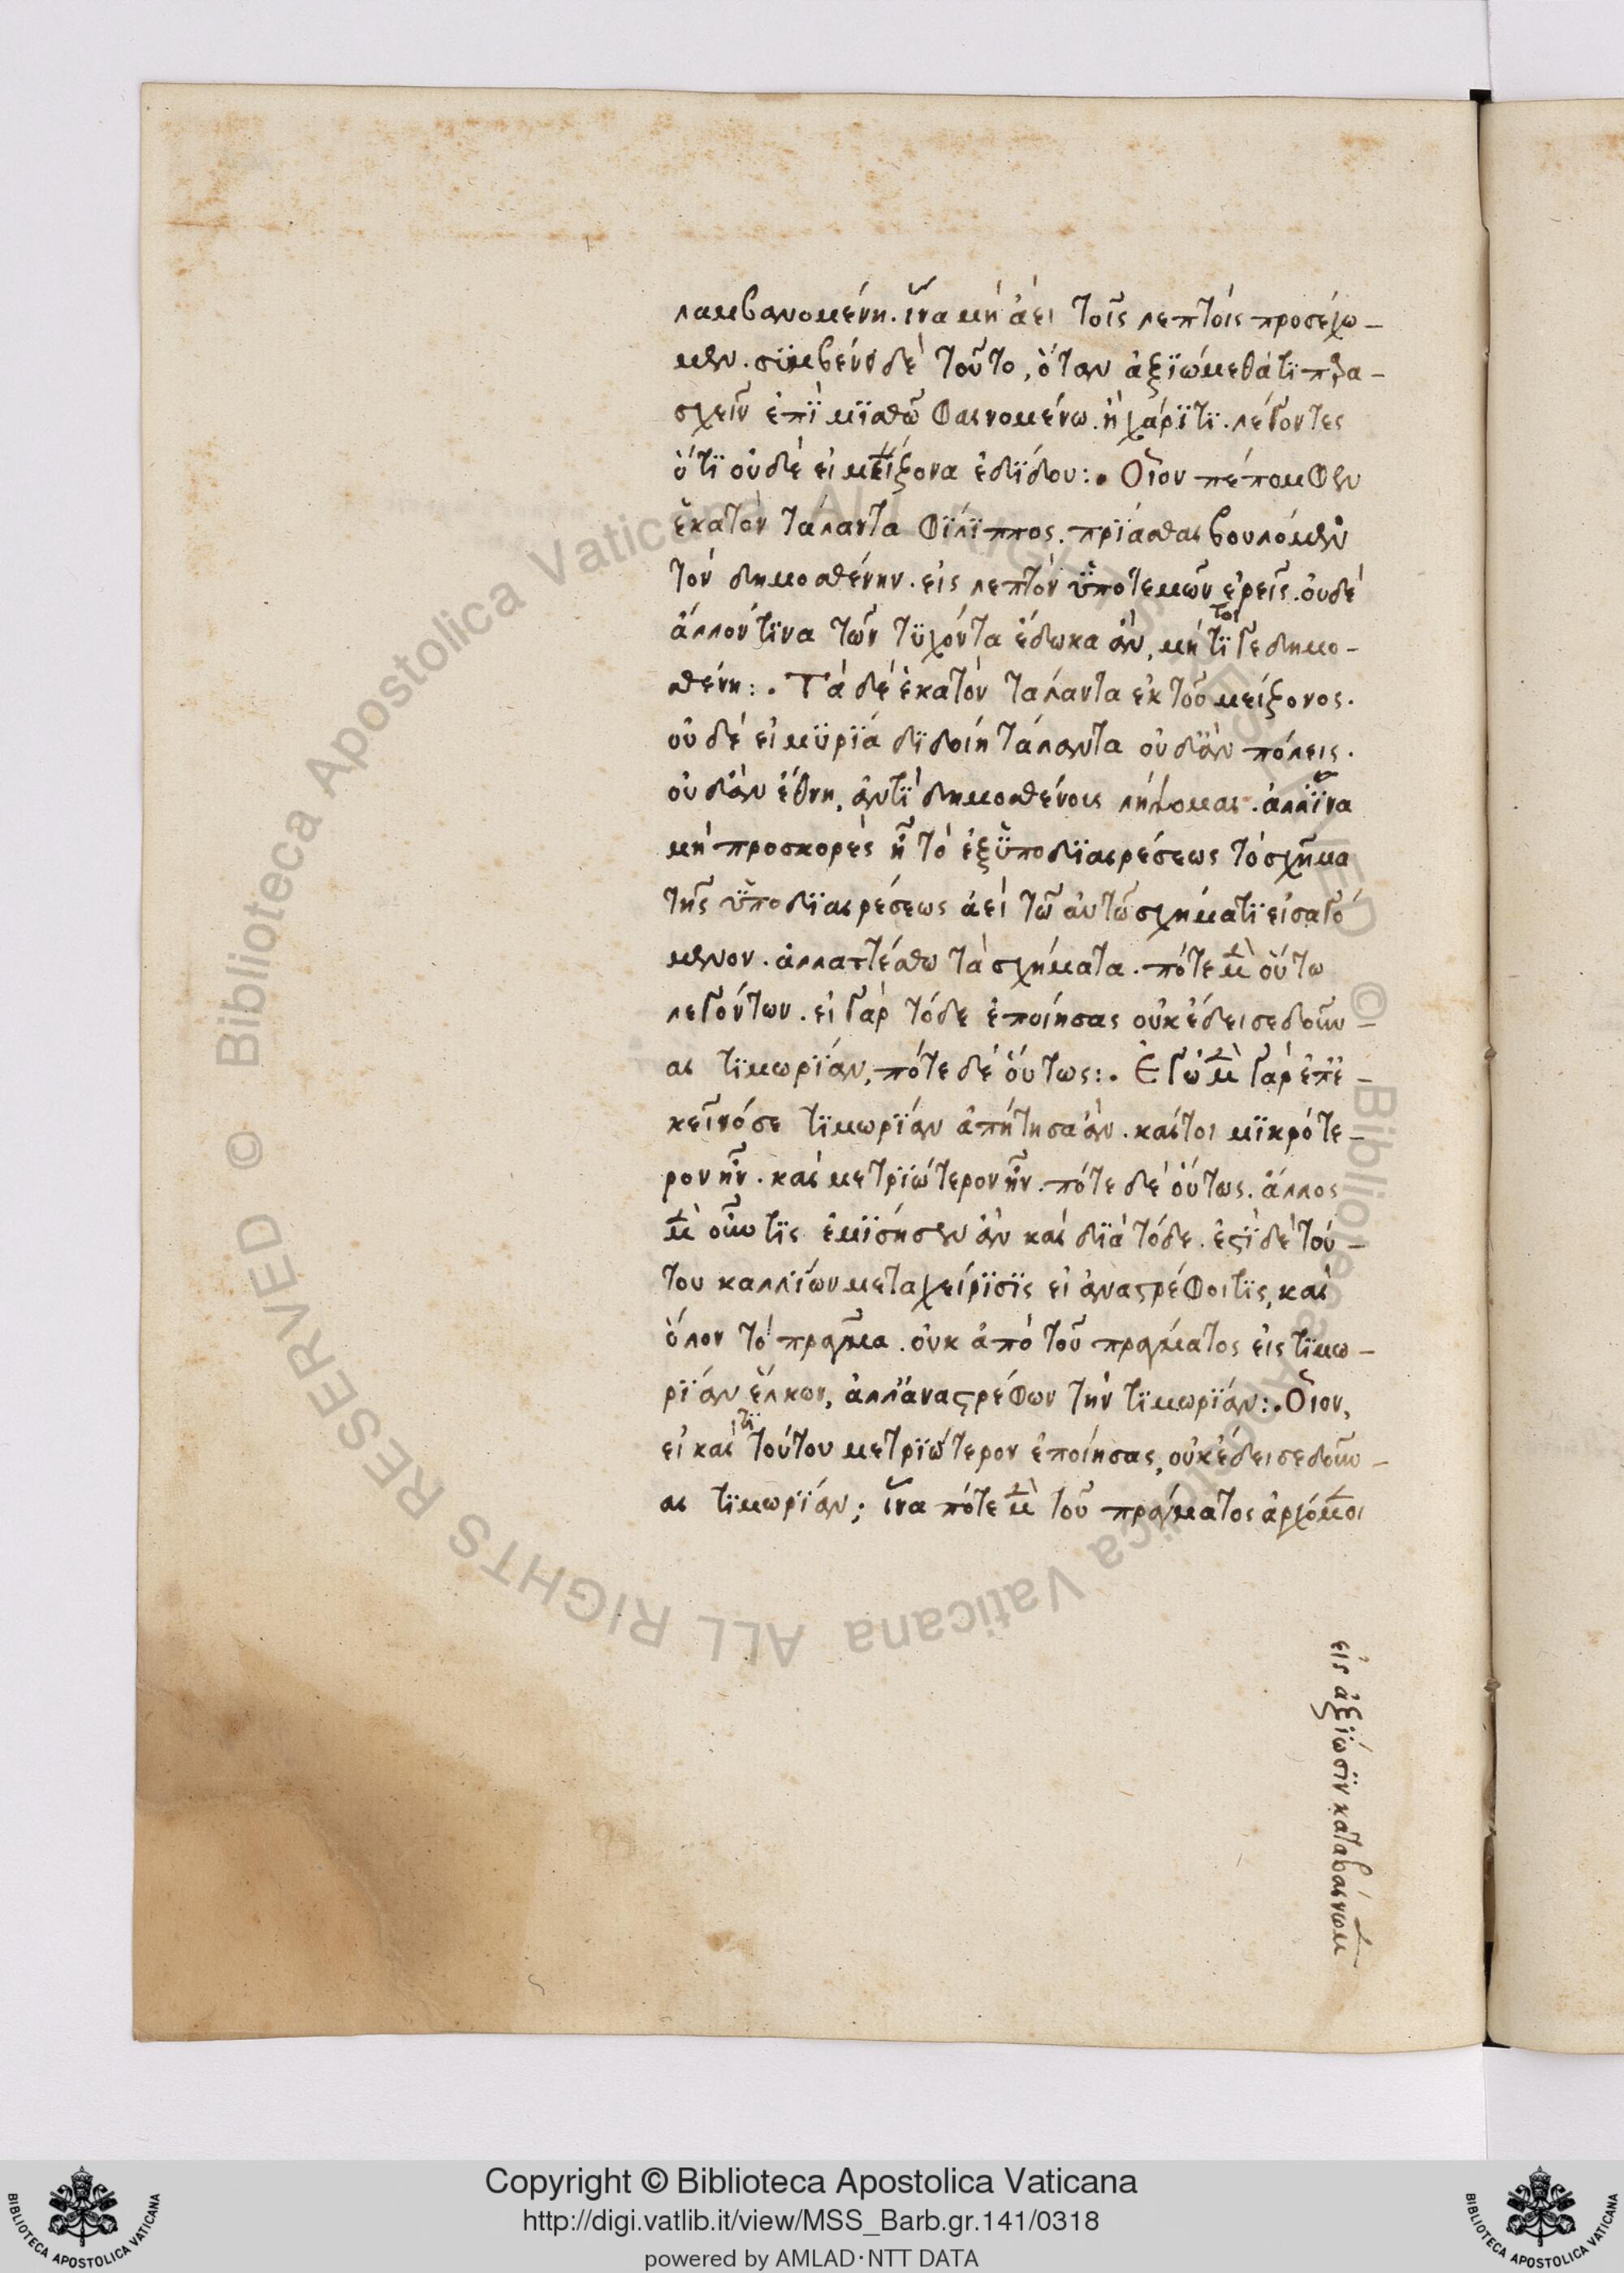 λαμβανομένη. ἵνα μὴ ἀεὶ τοῖς λεπτοῖς προσέχω-
μεν. συμβαίνει δὲ τοῦτο, ὅταν ἀξϊώμεθά τϊ πρα-
σχεῖν ἐπῒ μϊσθῶ φαινομένω. ἢ χάρϊτϊ. λέγοντες
ὅτϊ οὐδὲ εἰ μείζονα ἐδϊδου:. Οἷον πέπομφεν
ἑκατὸν τάλαντα φϊλϊππος. πρϊάσθαι βουλόμεν
τὸν δημοσθένην. εἰς λεπτὸν ὑποτεμὼν ἐρεῖς. οὐδὲ
ἄλλον τϊνα τῶν τϋχόντα ἔδωκα ἂν, μὴ τοί τϊ γε δημο-
σθένη:. Τὰ δὲ ἑκατὸν τάλαντα ἐκ τοῦ μείζονος.
οὐδὲ εἰ μϋρϊά δϊδοίη τάλαντα οὐδ' ἂν πόλεις.
οὐδ' ἂν ἔθνη, ἀντῒ δημοσθένους λήψομαι. ἀλλ' ἵνα
μὴ προσκορὲς ἦ τὸ ἐξ ὑποδϊαιρέσεως τὸ σχῆμα
τῆς ὑποδϊαιρέσεως ἀεὶ τῶ αὐτῶ σχήματϊ εἰσαγό
μενον. ἀλλαττέσθω τὰ σχήματα. πότε μὲν οὕτω
λεγόντων. εἰ γὰρ τόδε ἐποίησας οὐκ ἔδει σε δοῦν-
αι τϊμωρϊάν, πότε δὲ οὕτως:. Ἐγὼ μὲν γὰρ ἐπ' ἐ-
κεῖνό σε τϊμωρϊάν ἀπήτησα ἂν. καίτοι μϊκρότε-
ρον ἦν. καὶ μετρϊώτερον ἦν. πότε δὲ οὕτως. ἄλλος
μὲν οὖν τϊς ἐμϊσησεν ἂν καὶ δϊὰ τόδε. ἔστϊ δὲ τού-
του καλλϊων μεταχείρϊσϊς εἰ ἀναστρέφοι τϊς, καὶ
ὅλον τὸ πρᾶγμα. οὐκ ἀπὸ τοῦ πράγματος εἰς τϊμω-
ρϊάν ἕλκων, ἀλλ' ἀναστρέφων τὴν τϊμωρϊάν:. Οἷον,
εἰ καί τϊ τούτου μετρϊώτερον ἐποίησας, οὐκ ἔδει σε δοῦν-
αι τϊμωρϊάν; ἵνα πότε μὲν τοῦ πράγματος ἀρχόμενοι
εἰς ἀξϊωσϊν καταβαίνωμεν
Copyright © Biblioteca Apostolica Vaticana
http://digi.vatlib.it/view/MSS_Barb.gr.141/0318
powered by AMLAD·NTT DATA
BIBLIOTECA APOSTOLICA VATICANA
BIBLIOTECA APOSTOLICA VATICANA
© Biblioteca Apostolica Vaticana ALL RIGHTS RESERVED
© Biblioteca Apostolica Vaticana ALL RIGHTS RESERVED